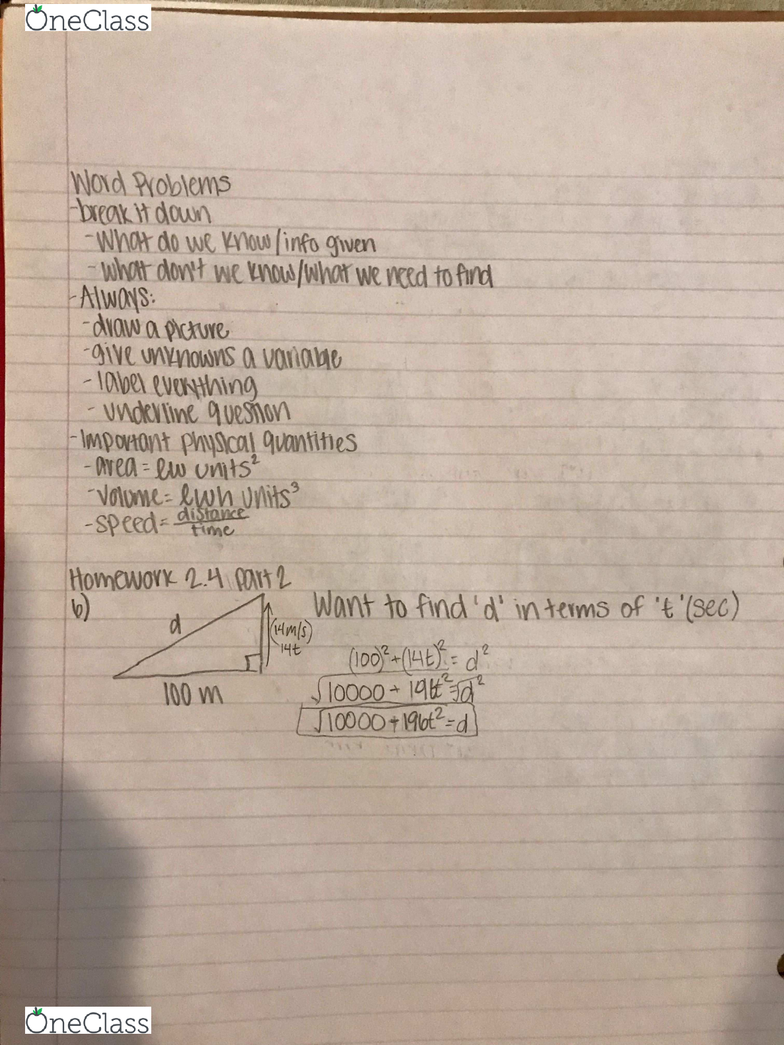 OneClass
Word Problems
-break it down
-What do we know/info given
-what don't we know/what we need to find
-Always:
-draw a picture
-give unknowns a variable
-label everything
-underline question
-Important physical quantities
-area = lw units²
-volume = lwh units³
-speed = distance/time
Homework 2.4 part 2
6)
d
(14m/s)
14t
100 m
Want to find 'd' in terms of 't'(sec)
(100)²+(14t)² = d²
√10000 + 196t² = √d²
√10000+196t² = d
OneClass